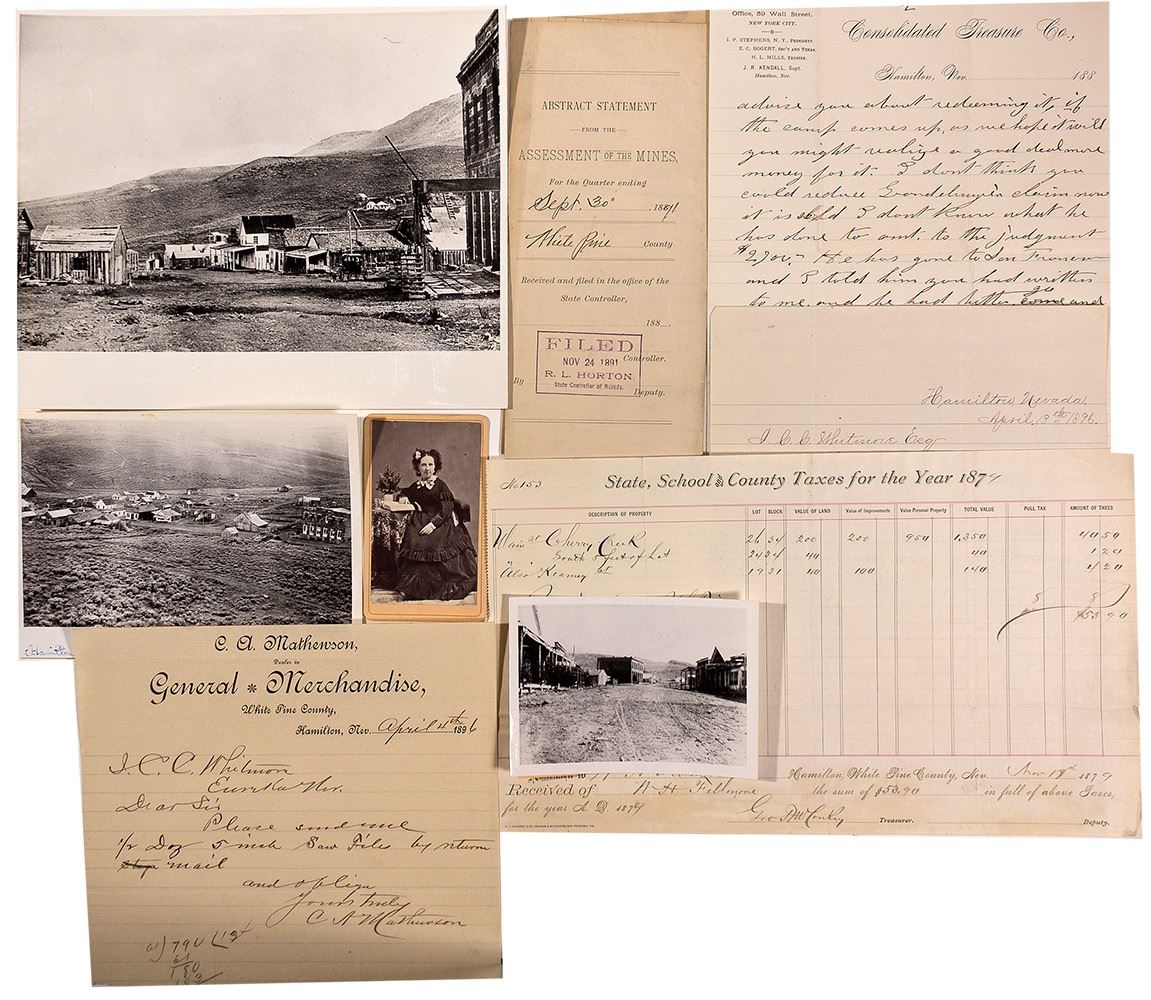 Office, 59 Wall Street,
NEW YORK CITY.
I. P. STEPHENS, N. Y., PRESIDENT.
E. C. BOGERT, SEC'Y AND TREAS.
H. L. MILLS, TRUSTEE.
J. R. KENDALL, Supt.
Hamilton, Nev.
Consolidated Treasure Co.,
Hamilton, Nev. 188
advise you about redeeming it, if
the camp comes up, as we hope it will
you might realize a good deal more
money for it. I dont think you
could reduce claim now
it is sold I dont know what he
has done to amt. to the judgment
$2700.- He has gone to San Francisco
and I told him you had written
to me and he had better come go and
ABSTRACT STATEMENT
FROM THE
ASSESSMENT OF THE MINES,
For the Quarter ending
Sept. 30" , 1891
White Pine County
Received and filed in the office of the
State Controller,
188 .
Controller.
By
Deputy.
FILED
NOV 24 1891
R. L. HORTON
State Controller of Nevada.
Hamilton Nevada
April, 13th 1896.
I. C. C. Whitmore Esq
No 153
State, School & County Taxes for the Year 1879
DESCRIPTION OF PROPERTY LOT BLOCK VALUE OF LAND Value of Improvements Value Personal Property TOTAL VALUE POLL TAX AMOUNT OF TAXES
Main St Cherry Creek 26 34 200 200 950 1,350 40 50
South 5 feet of Lot 24 34 40 40 1 20
"Also Kearney St 19 31 40 100 140 4 20
8 8
$53 90
Hamilton, White Pine County, Nev. Nov 18th 1879
Received of W H Fillmore the sum of $53.90 in full of above Taxes,
for the year A. D. 1879
Geo Treasurer. Deputy.
Hamilton
C. A. Mathewson,
Dealer in
General * Merchandise,
White Pine County,
Hamilton, Nev. April 4th 1896
I. C. C. Whitmore
Eureka Nev.
Dear Sir
Please send me
1/2 Doz 5 inch Saw Files by return
Stage mail
and oblige
Yours truly
C A Mathewson
61) 790 (13
61
180
183